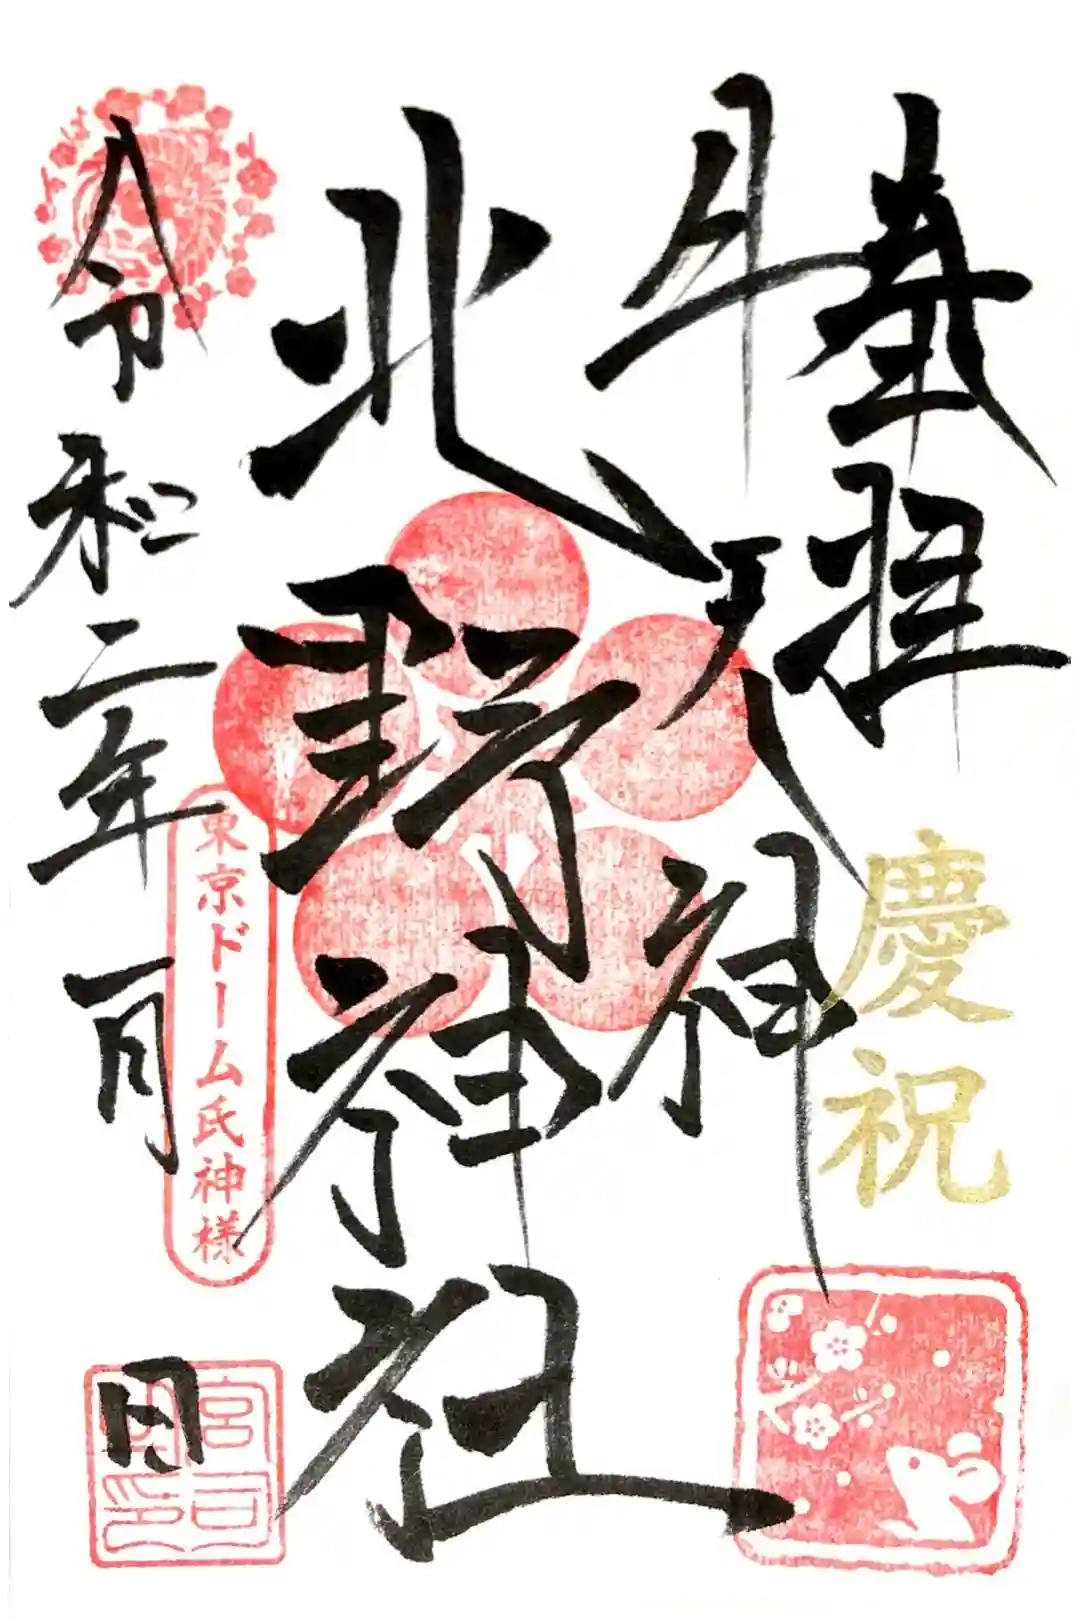 奉拝
牛天神
慶祝
北野神社
令和二年一月
日
東京ドーム氏神様
宮司
之印